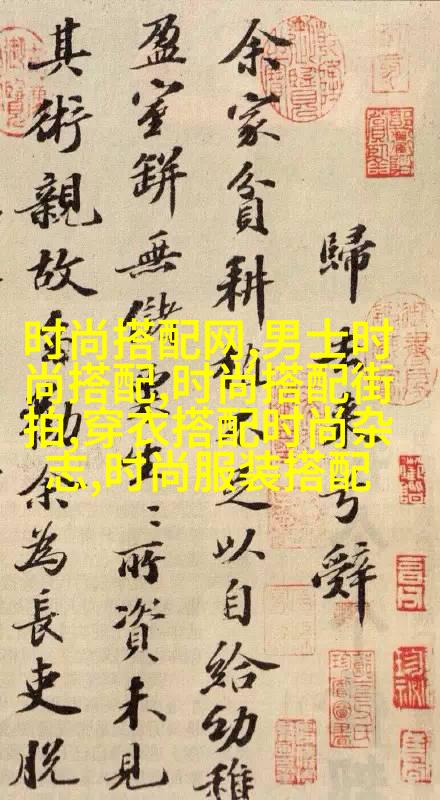 歸去来兮辭
余家貧耕植不足以自給幼稚
盈室缾無儲粟生〻所資未見
其術親故多勸余為長吏脫
时尚搭配网,男士时
尚搭配,时尚搭配街
拍,穿衣搭配时尚杂
志,时尚服装搭配